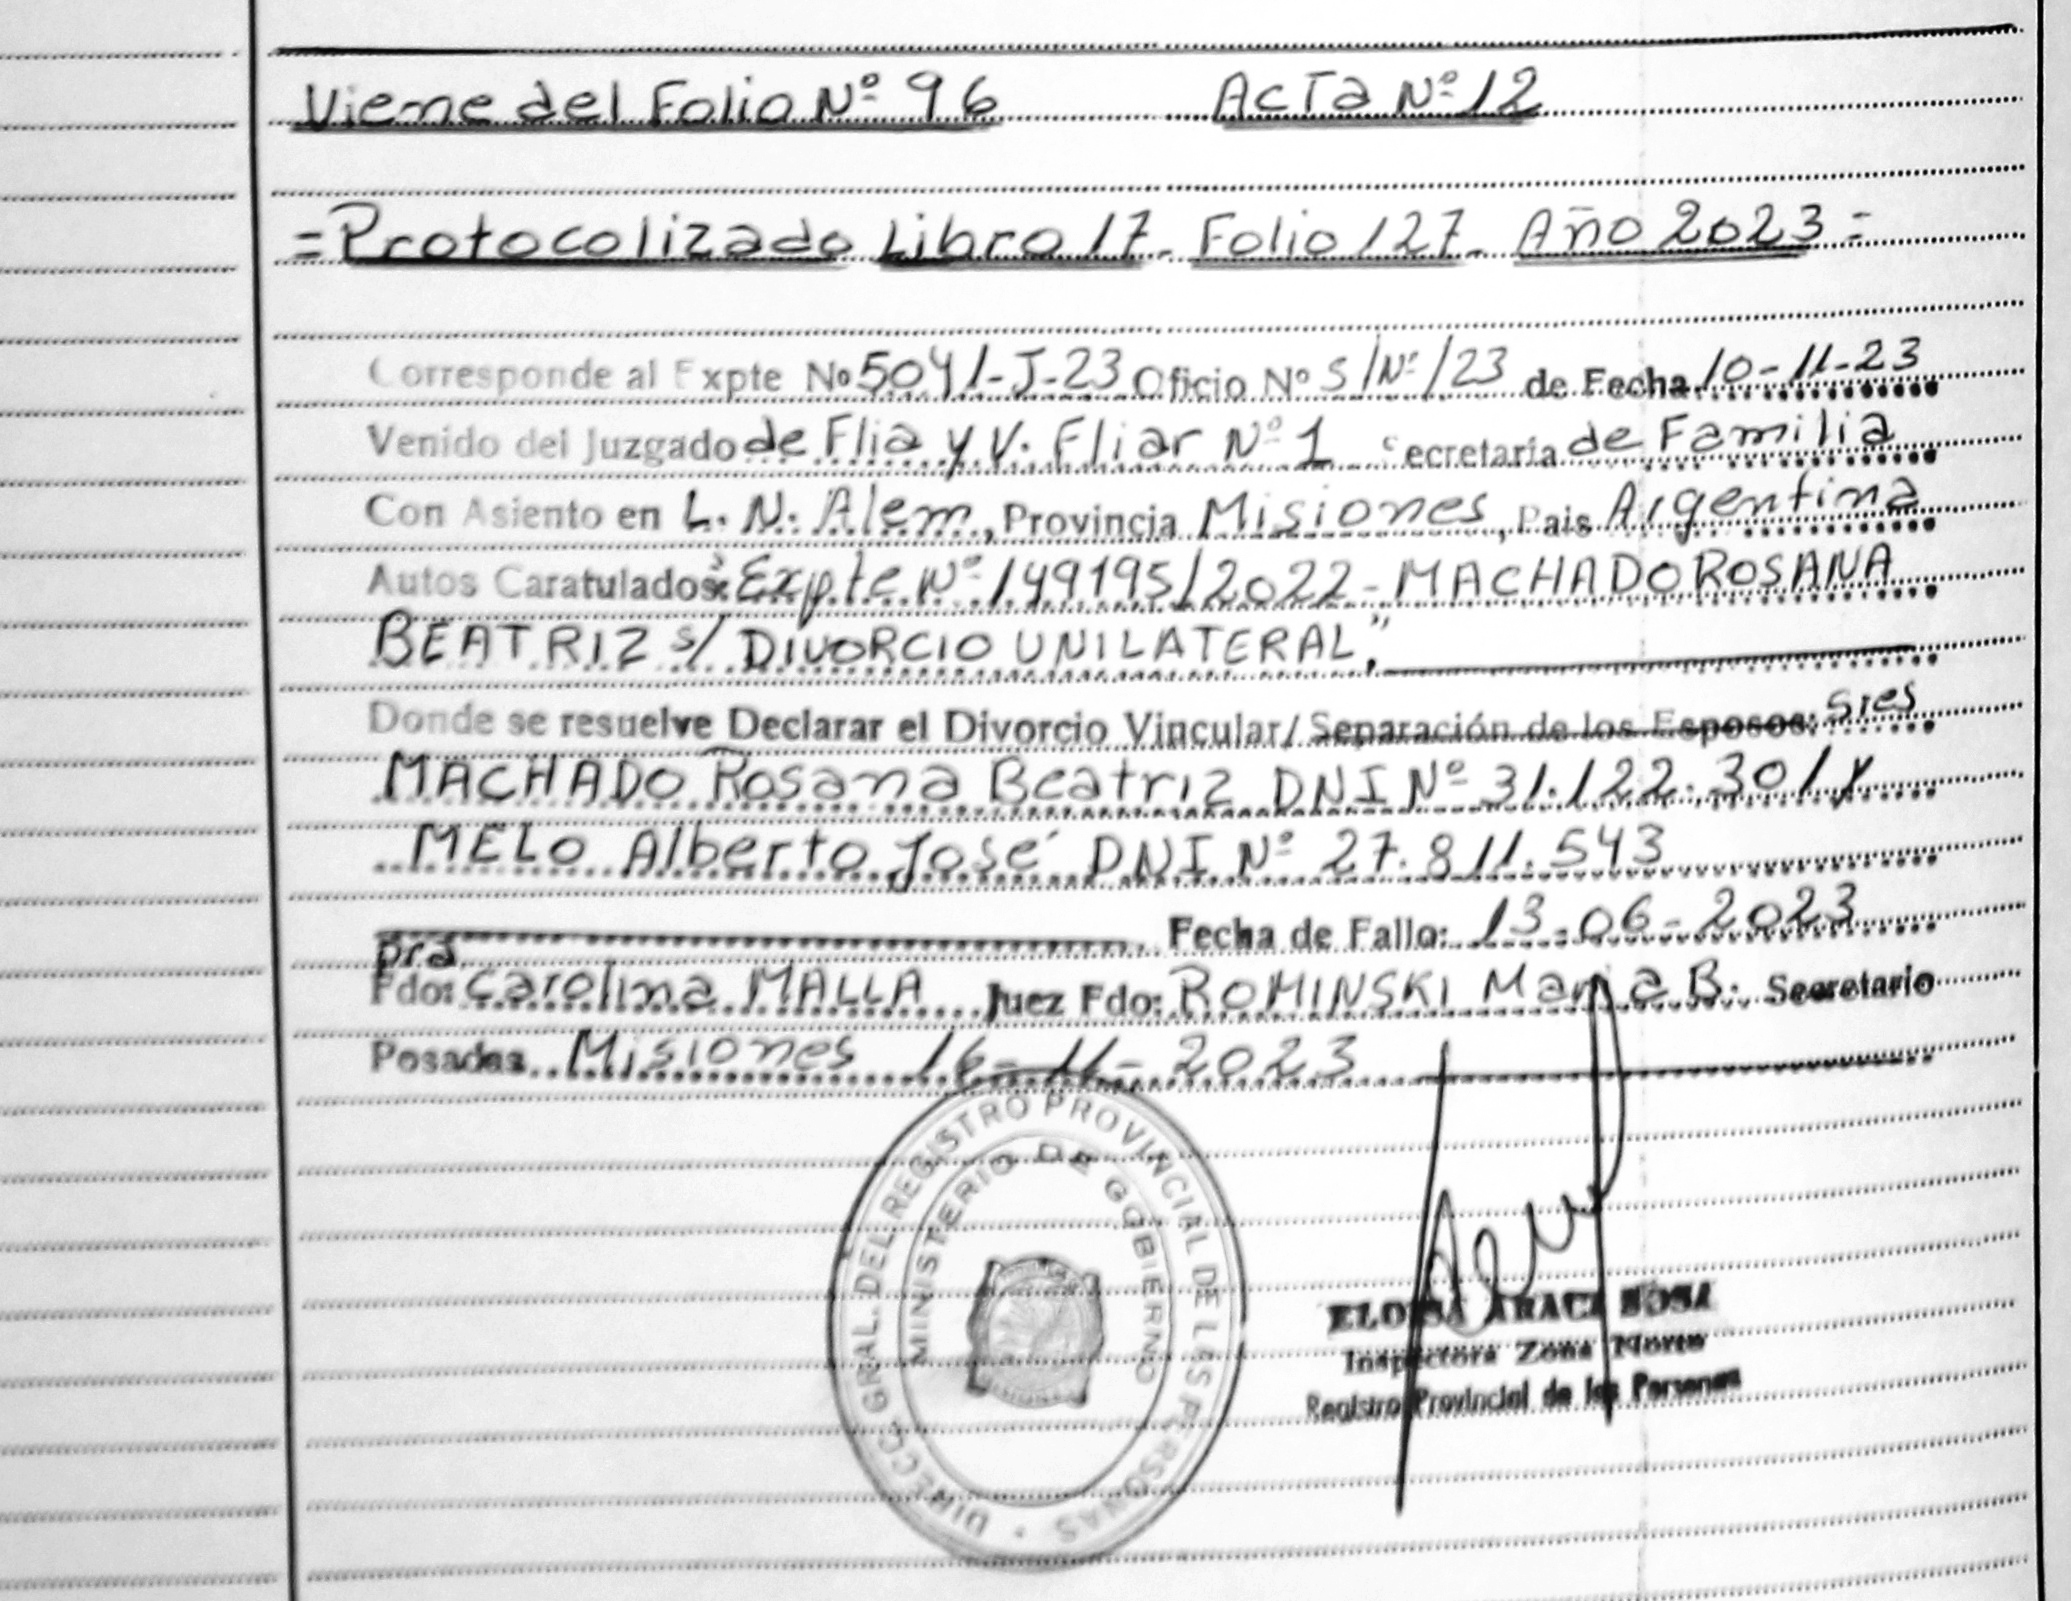 Viene del Folio Nº 96 Acta Nº 12
=Protocolizado Libro 17- Folio 127- Año 2023=
Corresponde al Expte Nº 5041-J-23 Oficio Nº S/Nº/23 de Fecha 10-11-23
Venido del Juzgado de Flia y V. Fliar Nº 1 Secretaria de Familia
Con Asiento en L. N. Alem, Provincia Misiones, Pais Argentina
Autos Caratulados: Expte Nº 149195/2022- MACHADO ROSANA
BEATRIZ s/ DIVORCIO UNILATERAL",
Donde se resuelve Declarar el Divorcio Vincular/ Separación de los Esposos: Sres
MACHADO Rosana Beatriz DNI Nº 31.122.301 y
MELO Alberto José DNI Nº 27.811.543
Fecha de Fallo: 13-06-2023
Dra
Fdo: Carolina MALLA Juez Fdo: ROMINSKI Maria B. Secretario
Posadas Misiones 16-11-2023
DIRECC. GRAL. DEL REGISTRO PROVINCIAL DE LAS PERSONAS
MINISTERIO DE GOBIERNO
ELOISA ARACI SOSA
Inspectora Zona Norte
Registro Provincial de las Personas